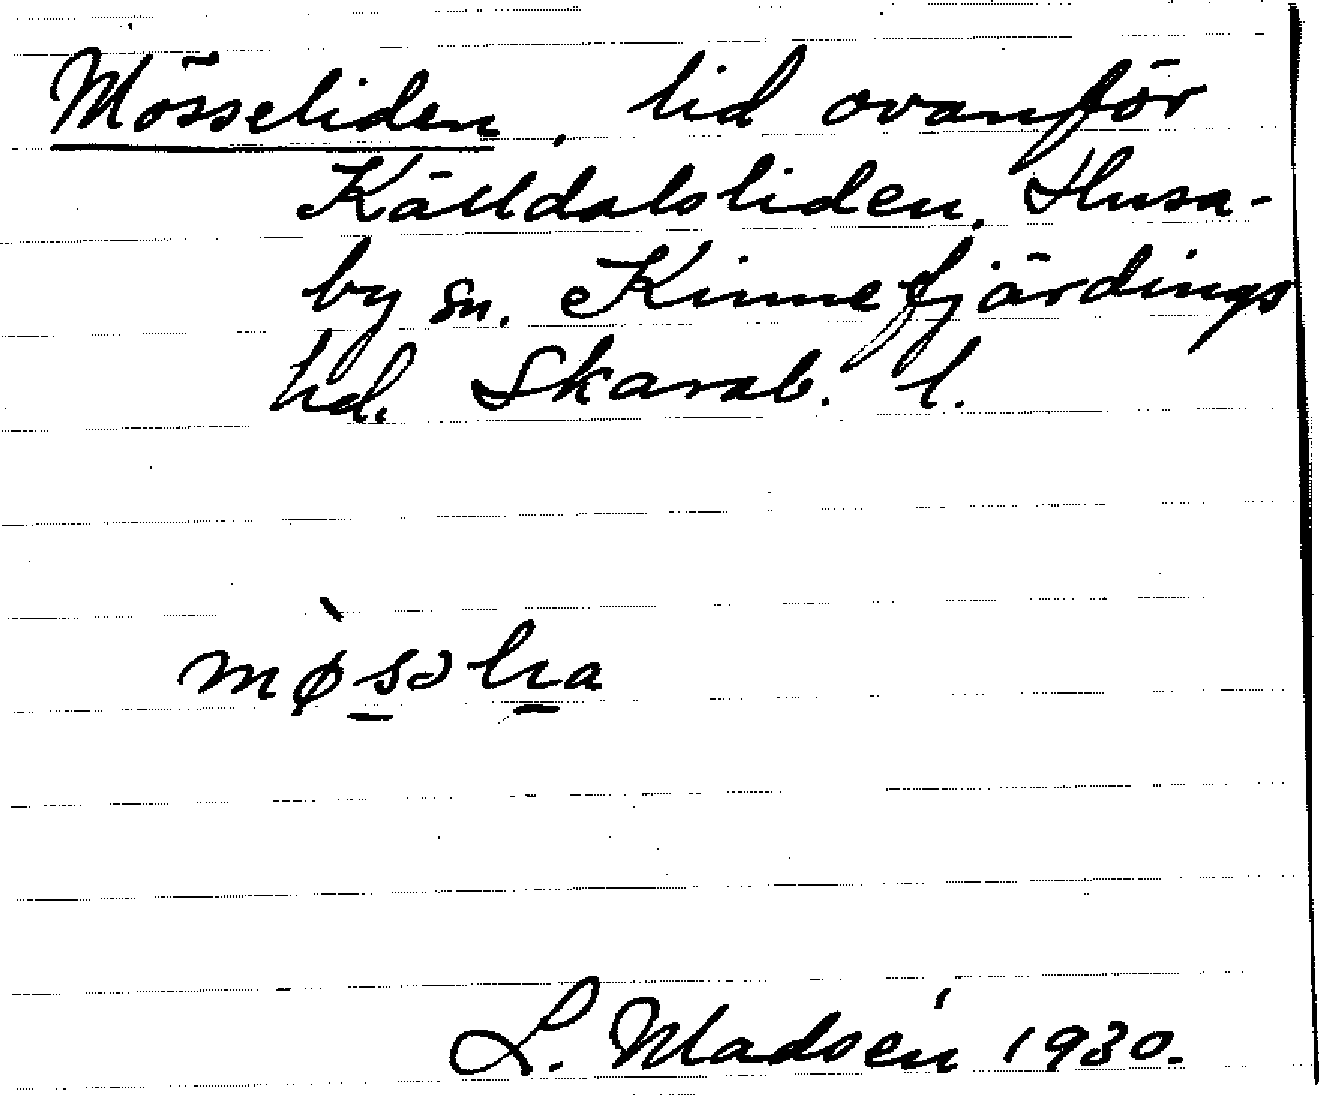 Mösseliden, lid ovanför
Källdalsliden, Husa-
by sn. Kinnefjärdings
hd. Skarab. l.
mø̀s̲əli̲a
L. Madsén 1930.